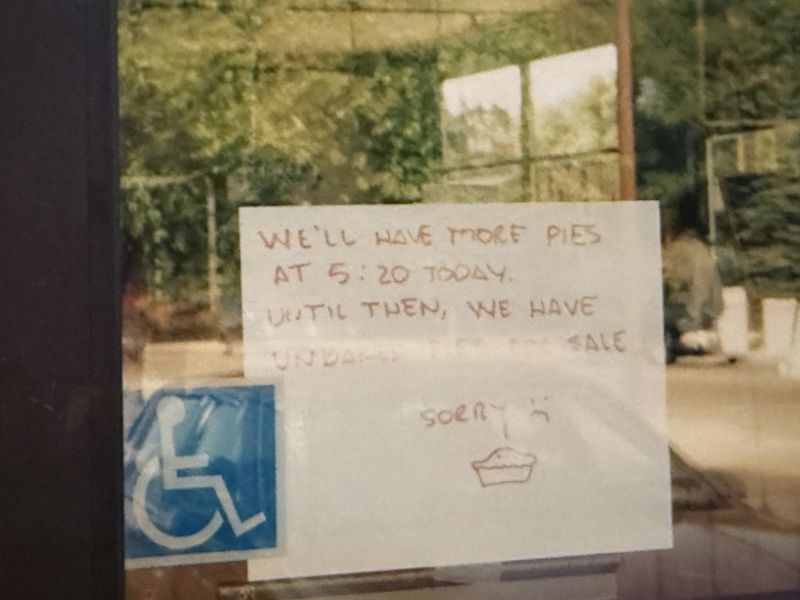 WE'LL HAVE MORE PIES
AT 5:20 TODAY.
UNTIL THEN, WE HAVE
SALE
SORRY :(